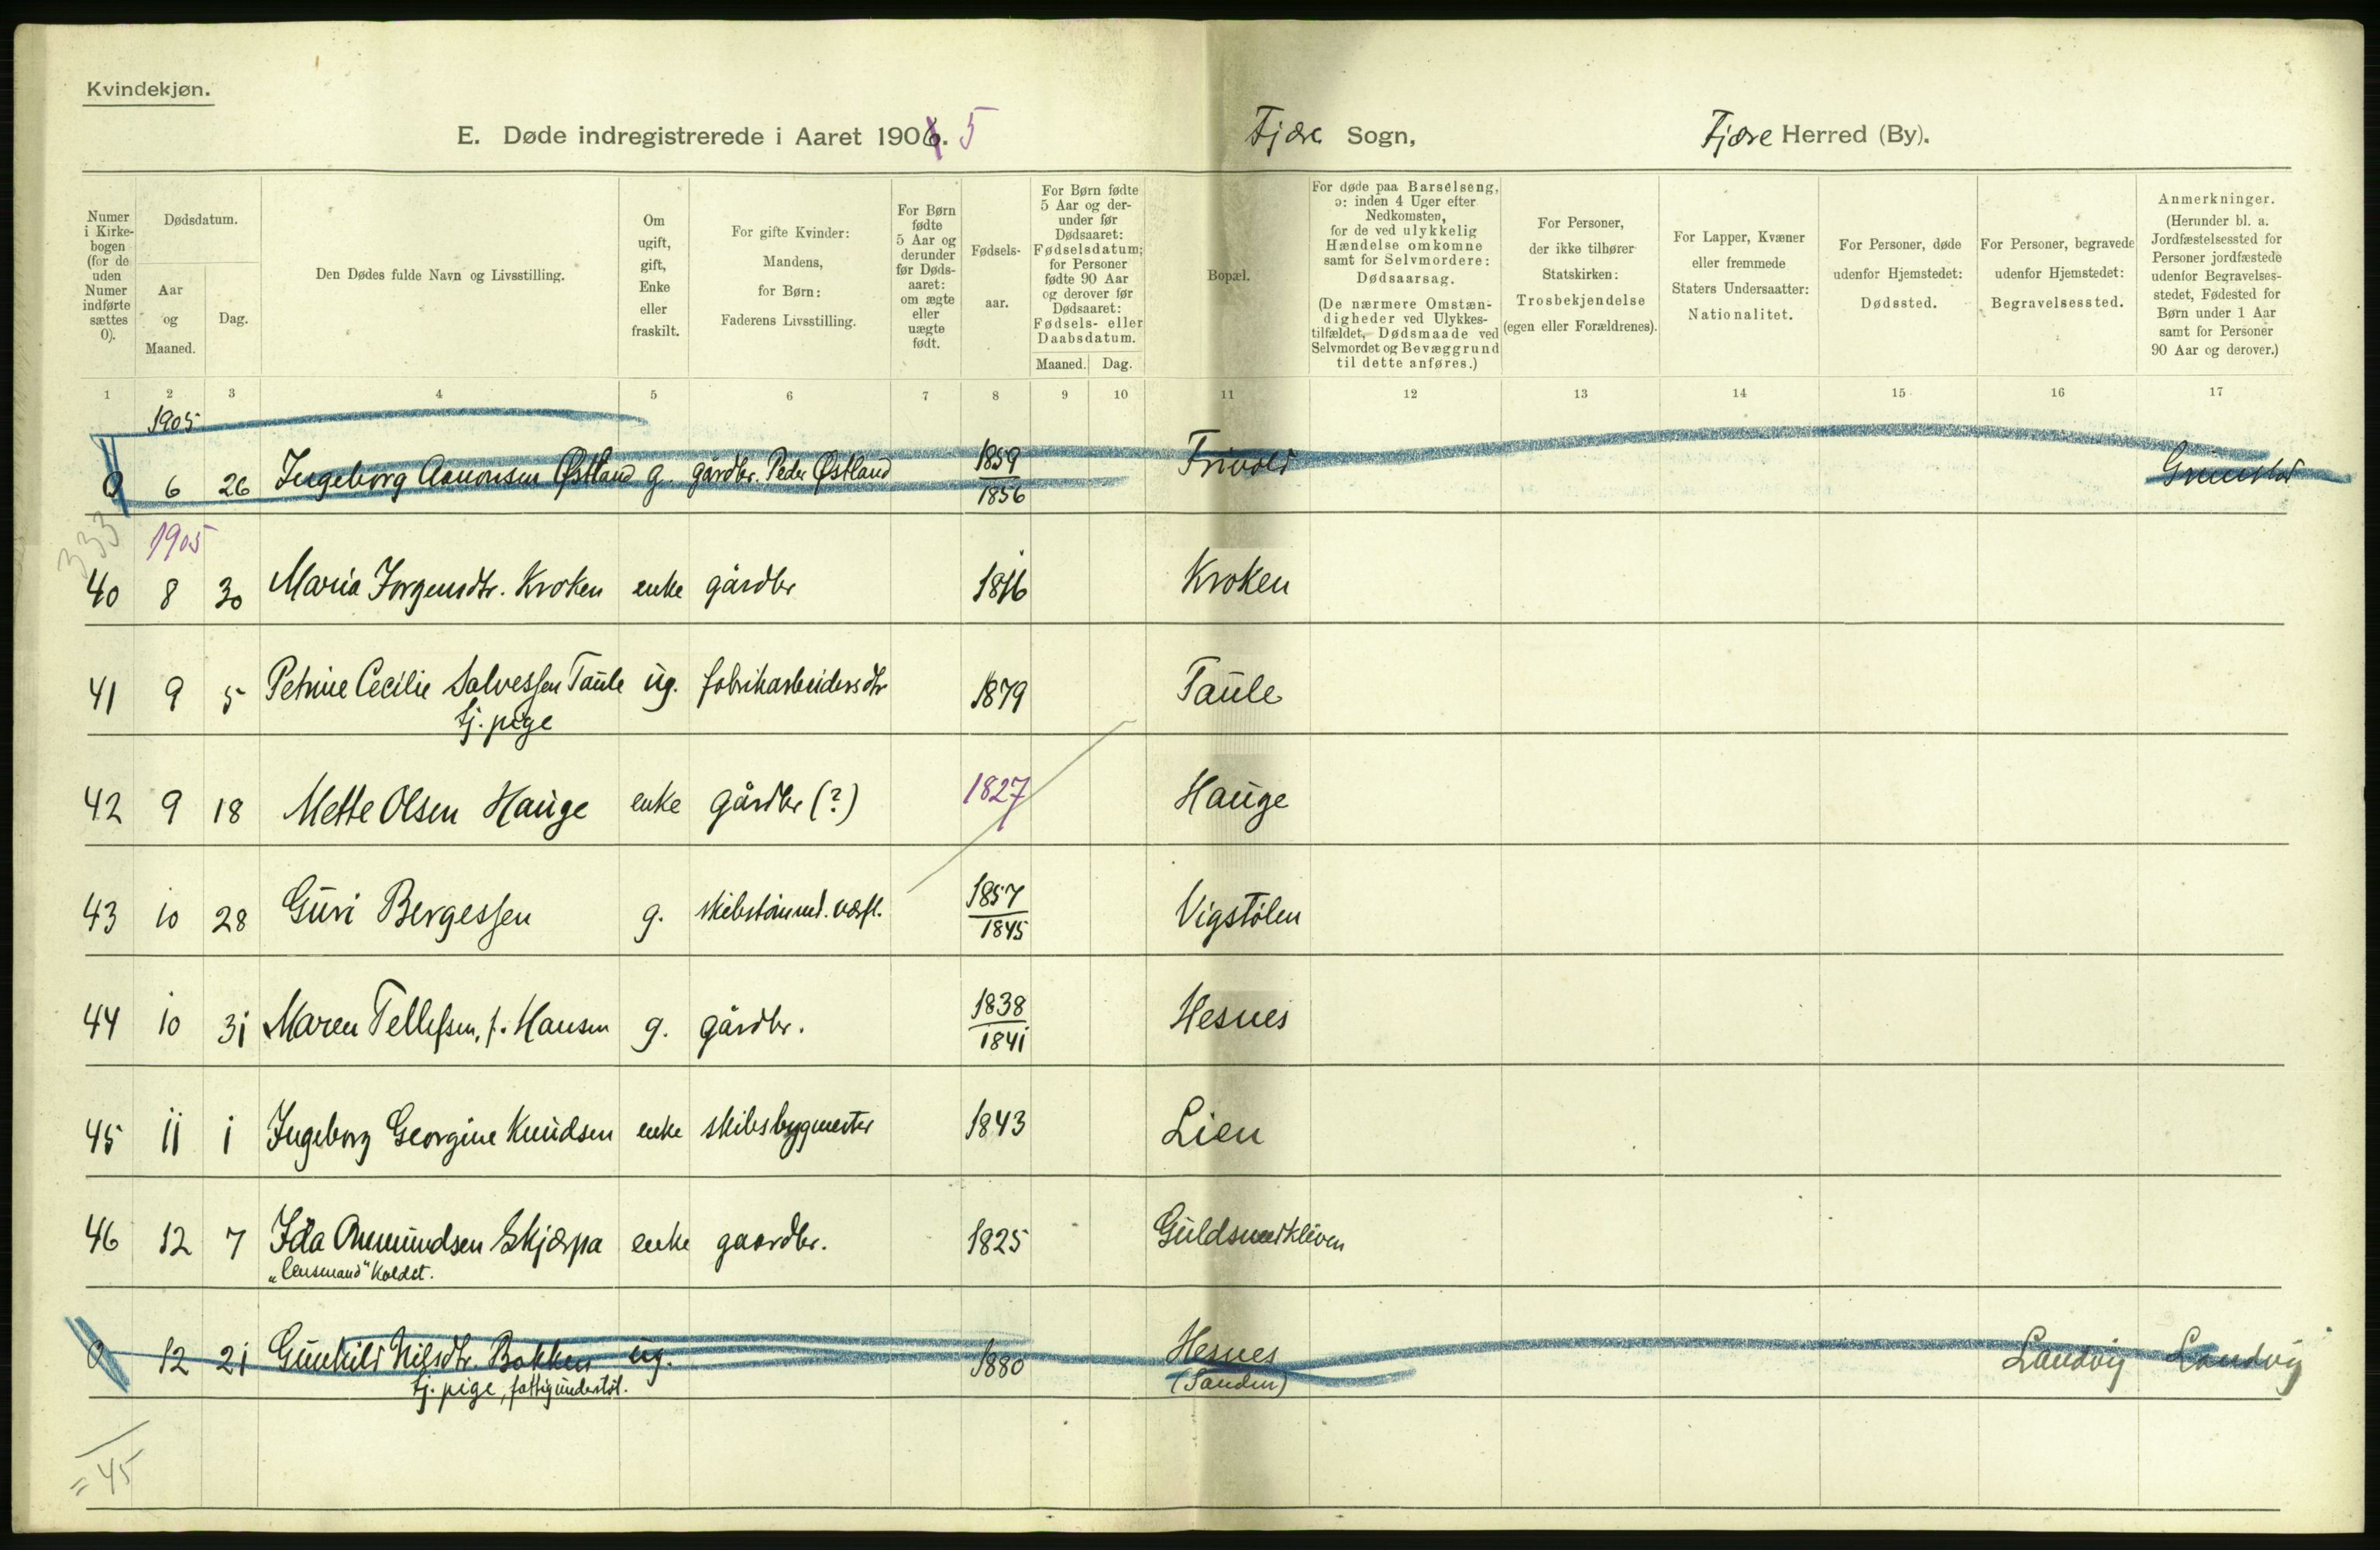 Kvindekjøn.
E. Døde indregistrerede i Aaret 1906. 5 Fjære Sogn, Fjære Herred (By).
Numer i Kirkebogen (for de uden Numer indførte sættes 0).
Dødsdatum.
Aar og Maaned.
Dag.
Den Dødes fulde Navn og Livsstilling.
Om ugift, gift, Enke eller fraskilt.
For gifte Kvinder: Mandens, for Børn: Faderens Livsstilling.
For Børn fødte 5 Aar og derunder før Dødsaaret: om ægte eller uægte født.
Fødselsaar.
For Børn fødte 5 Aar og derunder før Dødsaaret: Fødselsdatum; for Personer fødte 90 Aar og derover før Dødsaaret: Fødsels- eller Daabsdatum.
Maaned. Dag.
Bopæl.
For døde paa Barselseng, ɔ: inden 4 Uger efter Nedkomsten, for de ved ulykkelig Hændelse omkomne samt for Selvmordere: Dødsaarsag.
(De nærmere Omstændigheder ved Ulykkestilfældet, Dødsmaade ved Selvmordet og Bevæggrund til dette anføres.)
For Personer, der ikke tilhører Statskirken: Trosbekjendelse (egen eller Forældrenes).
For Lapper, Kvæner eller fremmede Staters Undersaatter: Nationalitet.
For Personer, døde udenfor Hjemstedet: Dødssted.
For Personer, begravede udenfor Hjemstedet: Begravelsessted.
Anmerkninger.
(Herunder bl. a. Jordfæstelsessted for Personer jordfæstede udenfor Begravelsesstedet, Fødested for Børn under 1 Aar samt for Personer 90 Aar og derover.)
1 2 3 4 5 6 7 8 9 10 11 12 13 14 15 16 17
1905
0 6 26 Ingeborg Aanonsen Østland g. gårdbr. Peder Østland 1859 1856 Frivold Grimstad
333
1905
40 8 30 Maria Jorgensdtr. Kroken enke gårdbr 1816 Kroken
41 9 5 Petrine Cecilie Salvessen Taule ug. fabrikarbeidersdtr 1879 Taule
tj. pige
42 9 18 Mette Olsen Hauge enke gårdbr (?) 1827 Hauge
43 10 28 Guri Bergessen g. skibstømmd. værft. 1857 1845 Vigstølen
44 10 31 Maren Tellefsen, f. Hansen g. gårdbr. 1838 1841 Hesnes
45 11 1 Ingeborg Georgine Knudsen enke skibsbygmester 1843 Lien
46 12 7 Ida Omundsen Skjærpa enke gaardbr. 1825 Guldsmedkleven
"lensmand" kaldet.
0 12 21 Gunhild Nilsdtr. Bakken ug. 1880 Hesnes Landvig Landvig
tj. pige, fattigunderstøt. (Sanden)
= 45